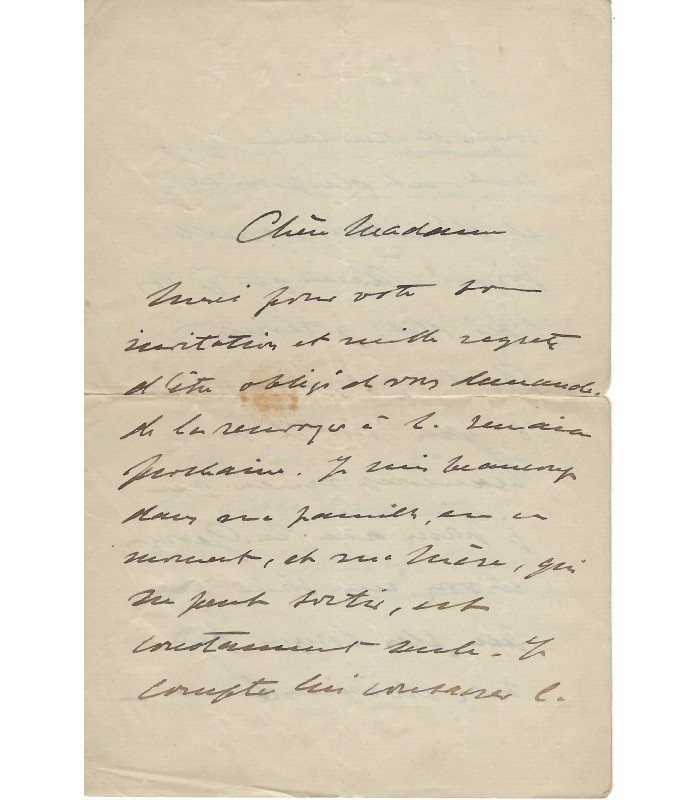 Chère Madame
Merci pour votre bonne
invitation et mille regrets
d'être obligé de vous demander
de la renvoyer à la semaine
prochaine. Je suis beaucoup
dans ma famille, en ce
moment, et ma Mère, qui
ne peut sortir, est
constamment seule. Je
compte lui consacrer le